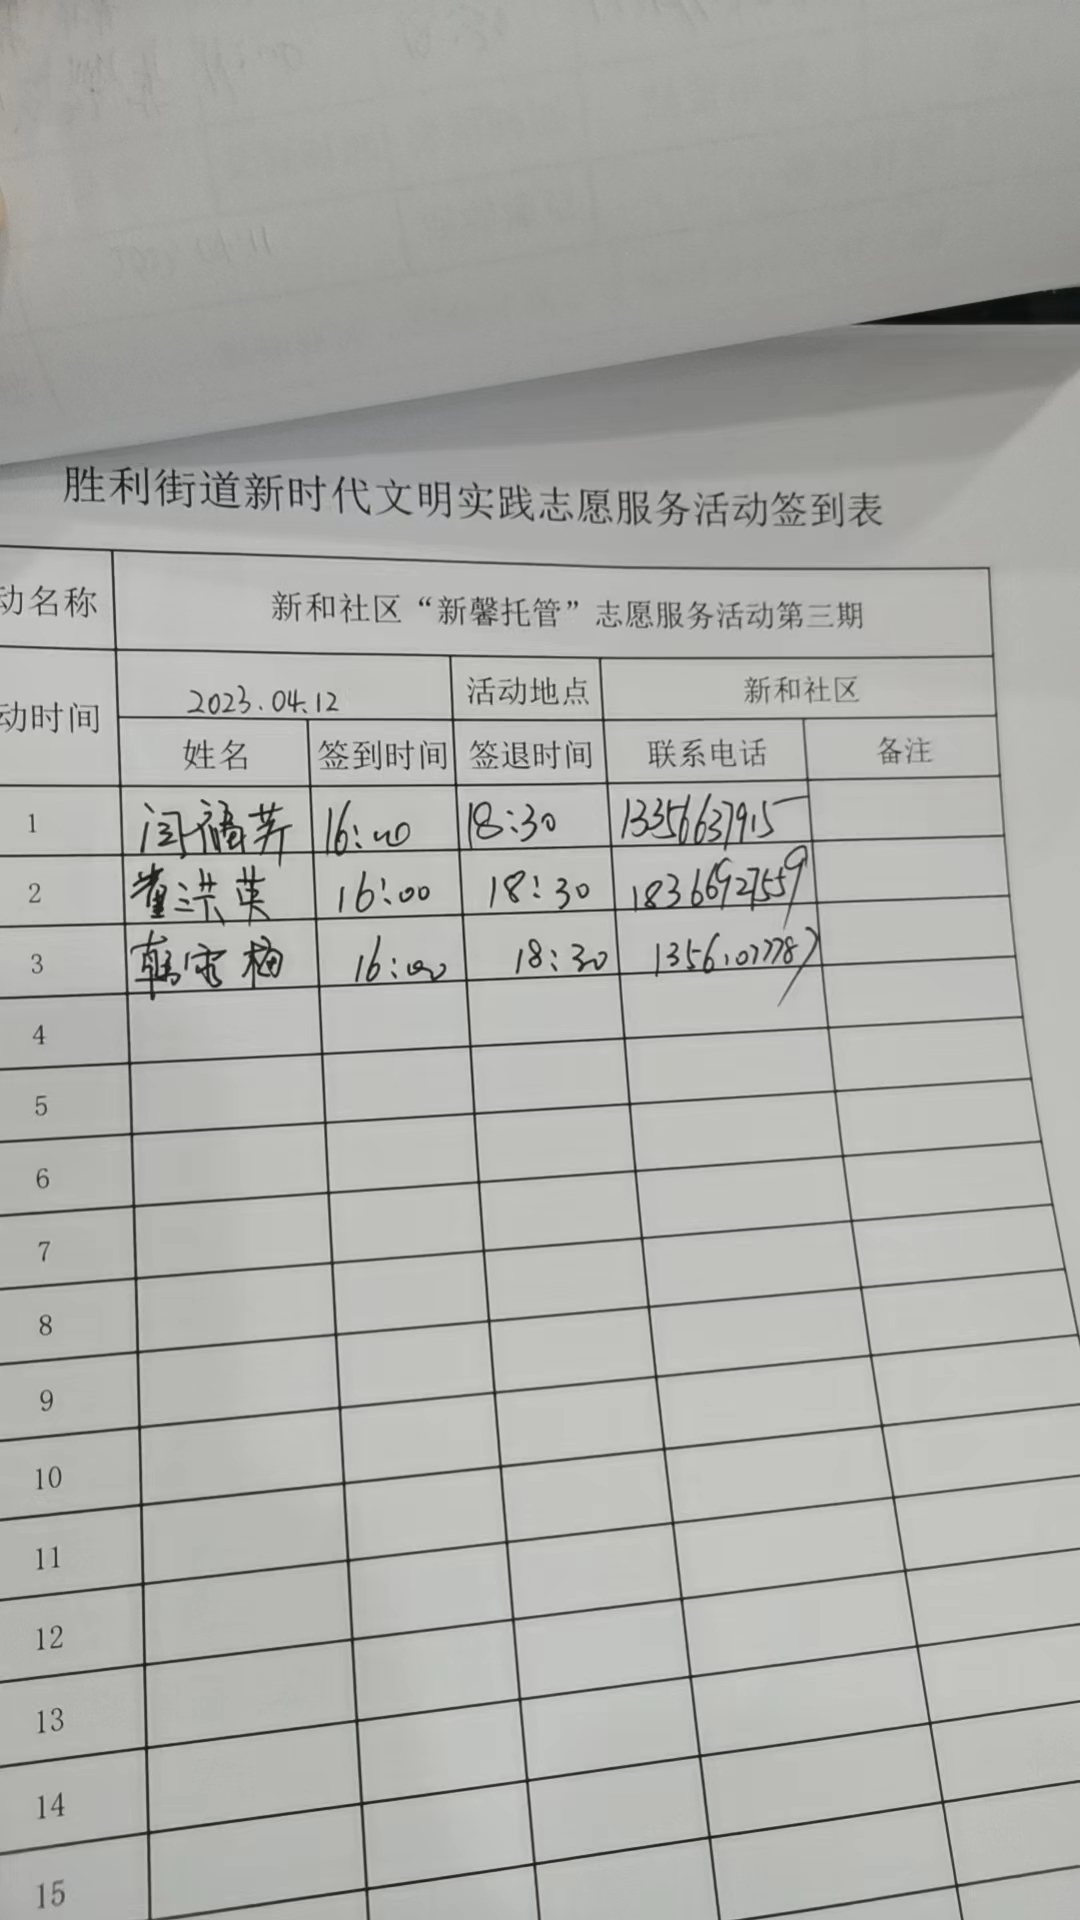 胜利街道新时代文明实践志愿服务活动签到表
动名称 新和社区“新馨托管”志愿服务活动第三期
动时间 2023.04.12 活动地点 新和社区
姓名 签到时间 签退时间 联系电话 备注
1 闫福芹 16:00 18:30 13356637915
2 崔洪英 16:00 18:30 18366927559
3 韩雪梅 16:00 18:30 13561077787
4
5
6
7
8
9
10
11
12
13
14
15